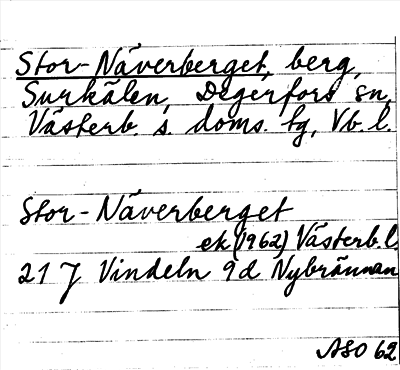 Stor-Näverberget, berg,
Surkälen, Degerfors sn,
Västerb. s. doms. tg, Vb. l.
Stor-Näverberget
ek (1962) Västerb. l.
21 J Vindeln 9d Nybrännan
ASO 62